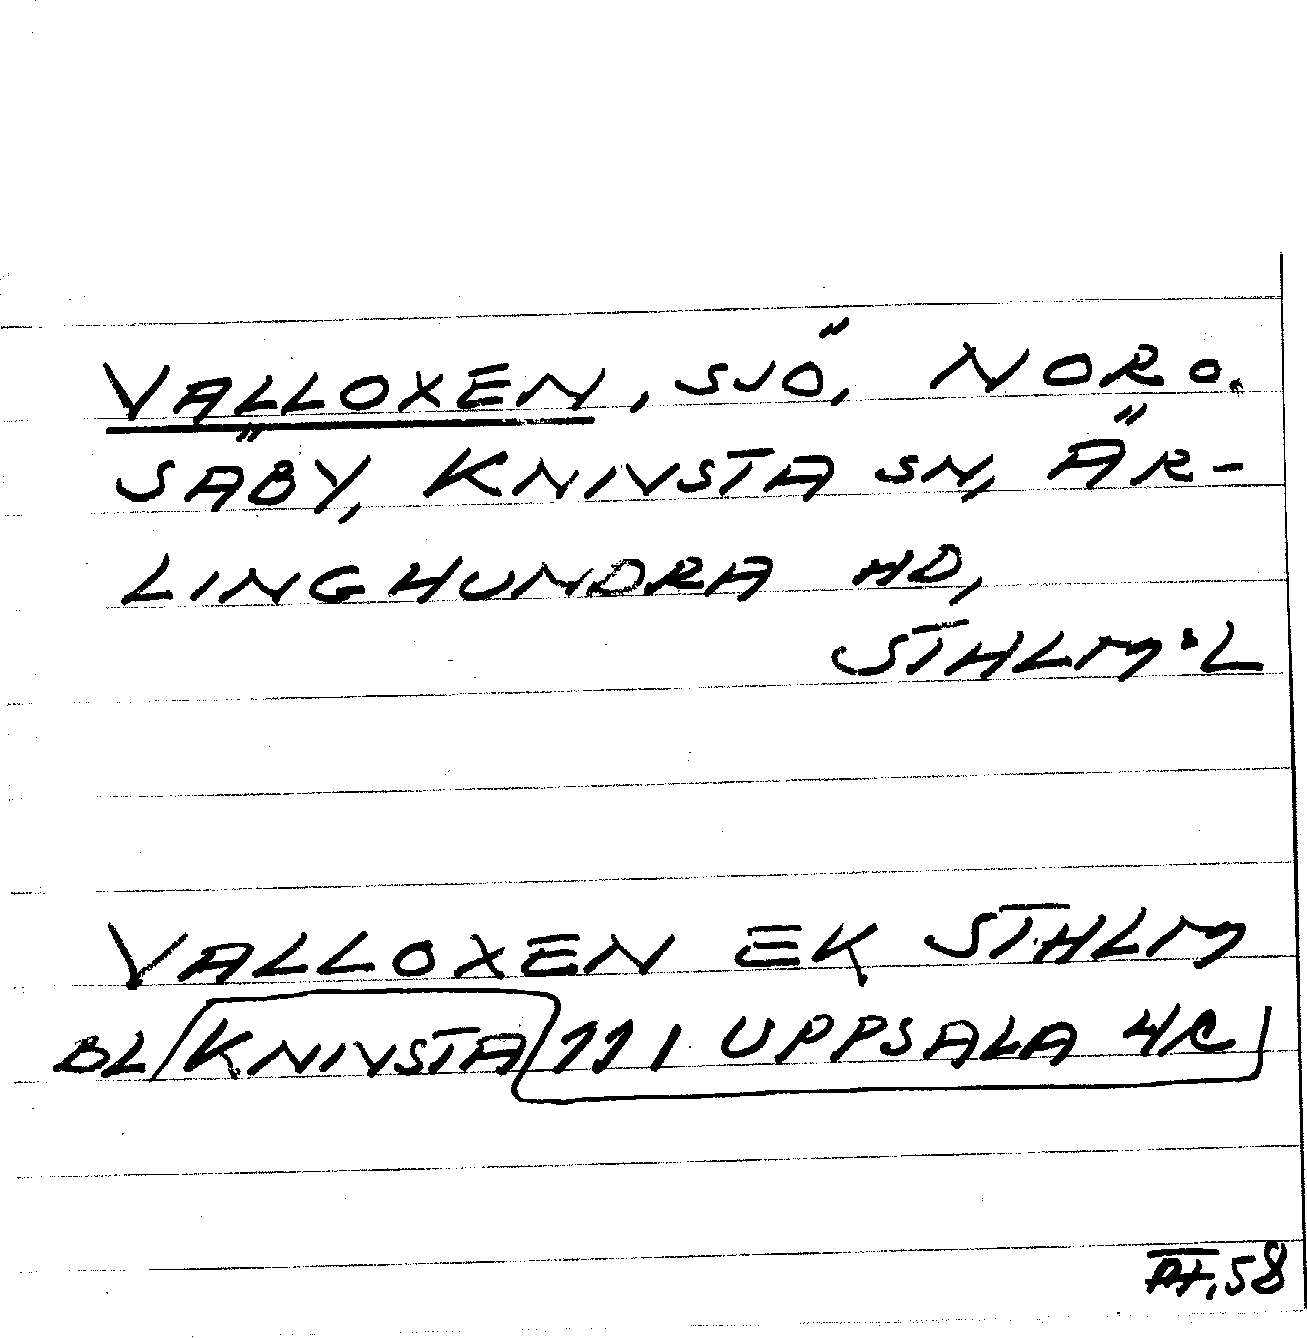 VALLOXEN, SJÖ, NOR O.
SÄBY, KNIVSTA SN, ÄR-
LINGHUNDRA HD,
STHLM:L
VALLOXEN EK STHLM
BL/KNIVSTA 111 UPPSALA 4C
58